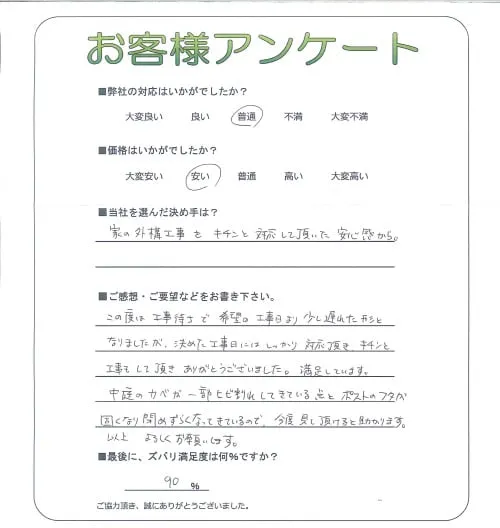 お客様アンケート
■弊社の対応はいかがでしたか？
大変良い 良い 普通 不満 大変不満
■価格はいかがでしたか？
大変安い 安い 普通 高い 大変高い
■当社を選んだ決め手は？
家の外構工事をキチンと対応して頂いた安心感から。
■ご感想・ご要望などをお書き下さい。
この度は工事待ちで希望の工事日より少し遅れたカンジと
なりましたが、決めた工事日にはしっかり対応頂き、キチンと
工事をして頂きありがとうございました。満足しています。
中庭のカベが一部ヒビ割れしてきている点とポストのフタが
固くなり閉めずらくなってきているので、今度見て頂けると助かります。
以上 よろしくお願いします。
■最後に、ズバリ満足度は何%ですか？
90 %
ご協力頂き、誠にありがとうございました。